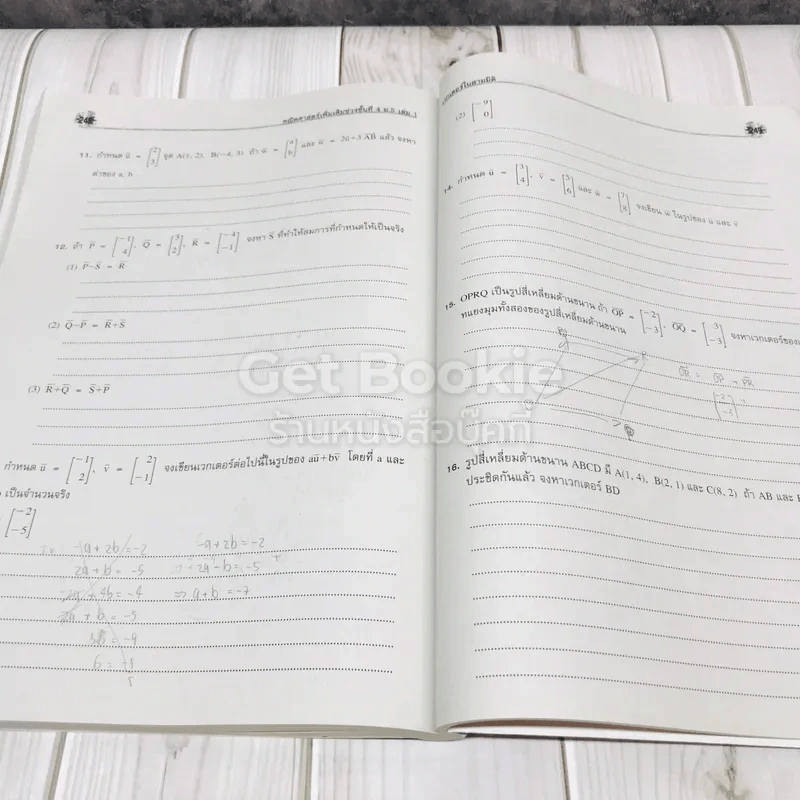 248
คณิตศาสตร์เพิ่มเติมช่วงชั้นที่ 4 ม.5 เล่ม 1
11. กำหนด ū = [2 3] จุด A(1, 2), B(-4, 3) ถ้า w̄ = [a b] และ w̄ = 2ū+3 AB แล้ว จงหา
ค่าของ a, b
12. ถ้า P̄ = [-1 4], Q̄ = [3 2], R̄ = [-4 -1] จงหา S̄ ที่ทำให้สมการที่กำหนดให้เป็นจริง
(1) P̄-S̄ = R̄
(2) Q̄-P̄ = R̄+S̄
(3) R̄+Q̄ = S̄+P̄
กำหนด ū = [-1 2], v̄ = [2 -1] จงเขียนเวกเตอร์ต่อไปนี้ในรูปของ aū+bv̄ โดยที่ a และ
เป็นจำนวนจริง
[-2 -5]
-a+2b = -2
2a+b = -5
-2a+4b = -4
2a+b = -5
-a+2b = -2
2a-b = -5
⇒ a+b = -7
= -9
249
เวกเตอร์ในสามมิติ
(2) [-9 0]
14. กำหนด ū = [3 4], v̄ = [5 6] และ w̄ = [7 8] จงเขียน w̄ ในรูปของ ū และ v̄
15. OPRQ เป็นรูปสี่เหลี่ยมด้านขนาน ถ้า OP = [-2 -3], OQ = [3 -3] จงหาเวกเตอร์ของ
ทแยงมุมทั้งสองของรูปสี่เหลี่ยมด้านขนาน
OR = OP + PR
[-2 -3]
16. รูปสี่เหลี่ยมด้านขนาน ABCD มี A(1, 4), B(2, 1) และ C(8, 2) ถ้า AB และ
ประชิดกันแล้ว จงหาเวกเตอร์ BD
Get Bookie
ร้านหนังสือบุ๊คกี้